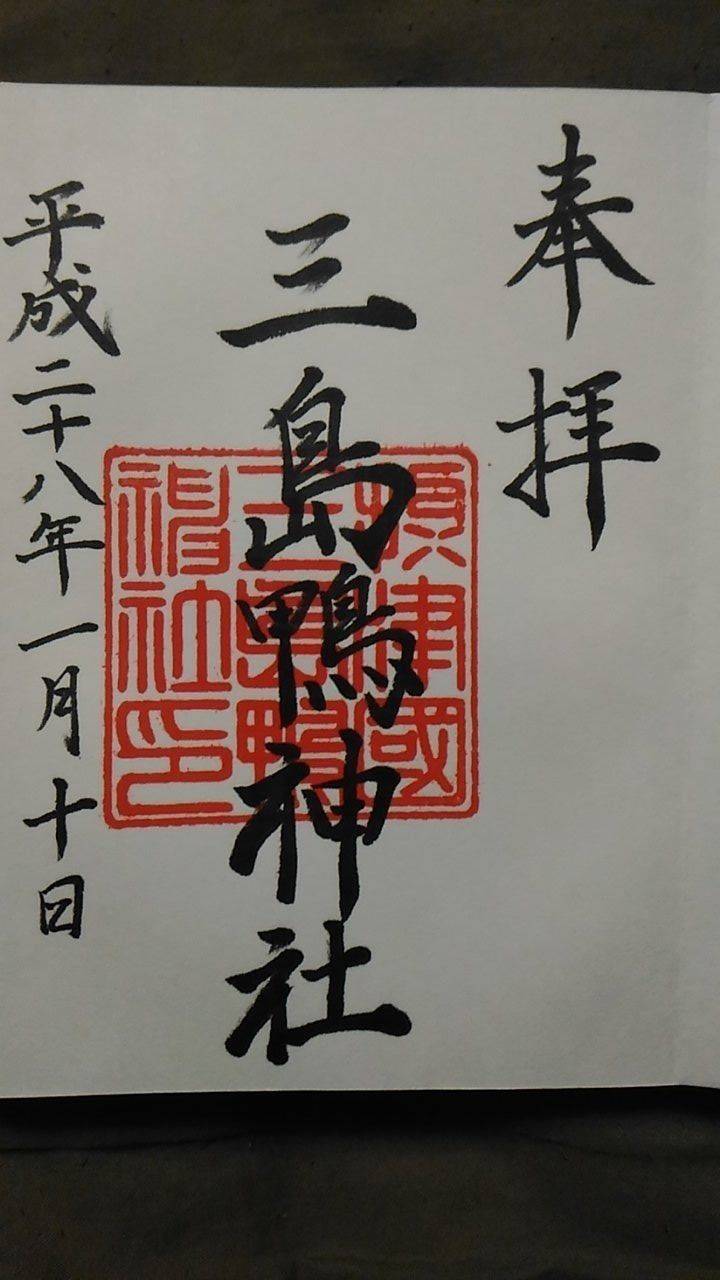 奉拝
三島鴨神社
攝津國
三島鴨
神社印
平成二十八年一月十日